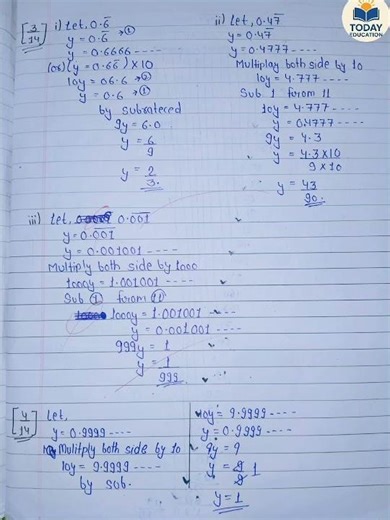 TODAY
EDUCATION
[3/14] i) Let, 0.6̅
y = 0.6̅ → ①
y = 0.6666 ----
(y = 0.66̅) × 10
10y = 06.6 → ②
y = 0.6 → ①
by subrateced
9y = 6.0
y = 6/9
y = 2/3.
ii) Let, 0.47̅
y = 0.47̅
y = 0.4777 -----
Multiplay both side by 10
10y = 4.777 -----
Sub 1 from 11
10y = 4.777 ----
y = 0.4777 ----
9y = 4.3
y = 4.3 × 10 / 9 × 10
y = 43/90.
iii) Let, 0.001̅
y = 0.001̅
y = 0.001001 ----
Multiply both side by 1000
1000y = 1.001001 ----
Sub ① from ⑪
1000y = 1.001001 ----
y = 0.001001 ----
999y = 1
y = 1/999
[4/14] Let,
y = 0.9999 ----
Mulitply both side by 10
10y = 9.9999 ----
by sub.
10y = 9.9999 ----
y = 0.9999 ----
9y = 9
y = 9/9 1
y = 1